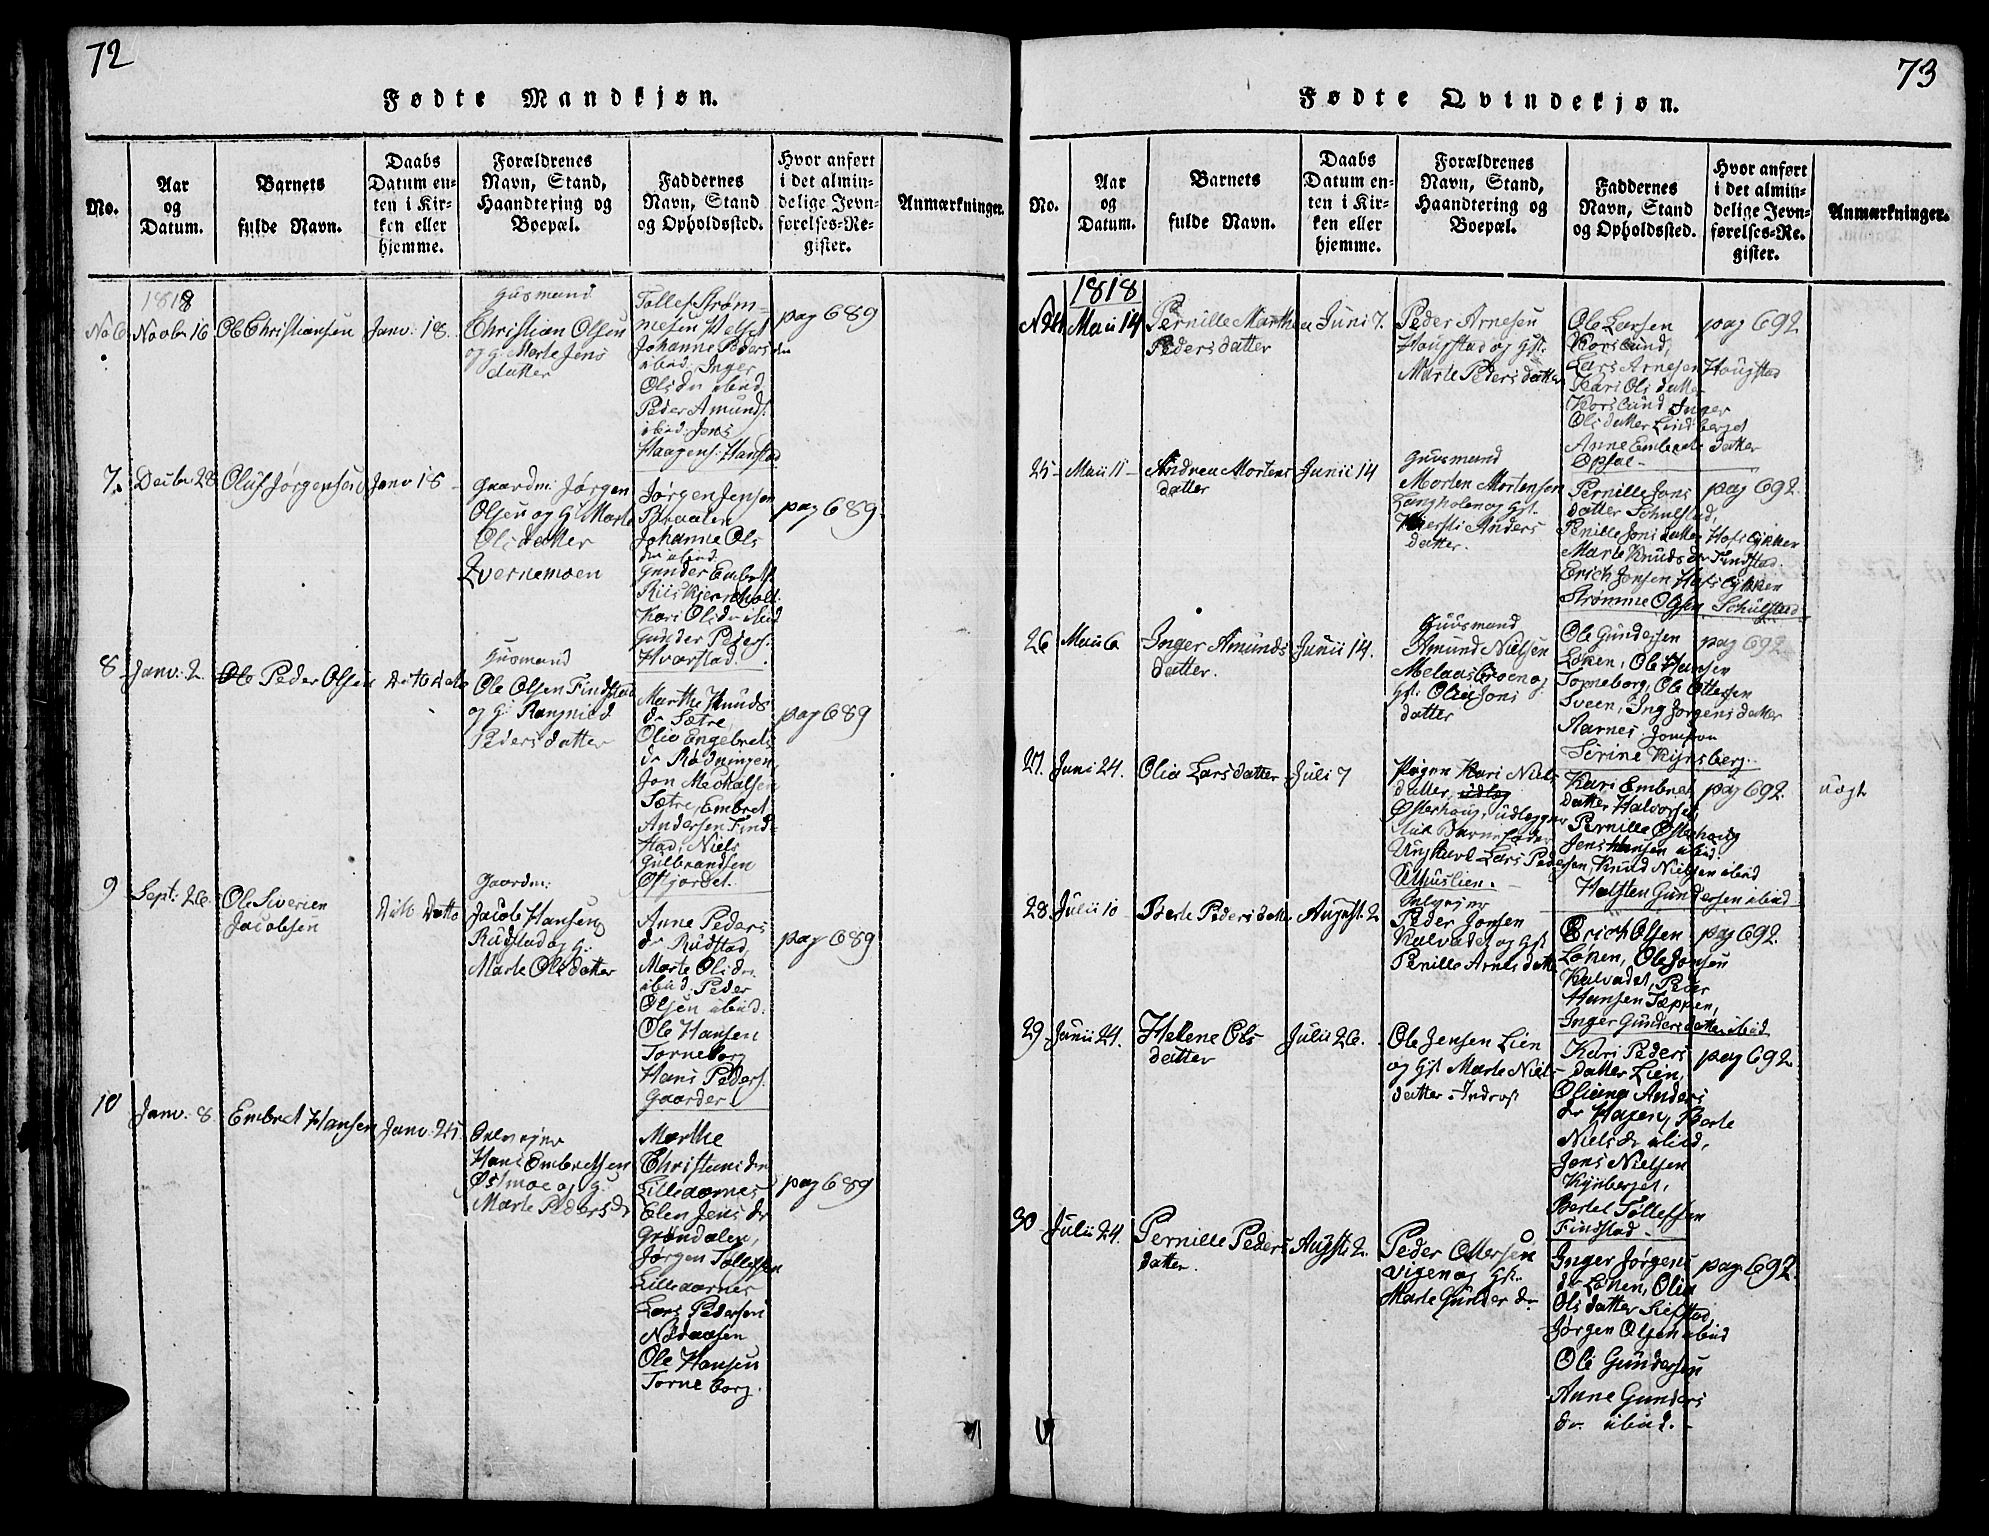 72
Fødte Mandkjøn.
No.
Aar
og
Datum.
Barnets
fulde Navn.
Daabs
Datum en-
ten i Kir-
ken eller
hjemme.
Forældrenes
Navn, Stand,
Haandtering og
Boepæl.
Faddernes
Navn, Stand
og Opholdssted.
Hvor anført
i det almin-
delige Jevn-
førelses-Re-
gister.
Anmærkninger.
1818
No 6
Novbr 16
Ole Christiansen
Janv: 18.
Husmand
Christian Olsen
og G. Marte Jens
datter
Tollef Strøm-
Johanne Peders
dr
ibid. Inger
Olsdr ibid.
Peder Amunds.
ibid. Jens
Haagens. Hanstad
pag 689
7.
Decbr 28
Oluf Jørgensen
Janv 18
Gaardm: Jørgen
Olsen og G. Marte
Olsdatter
Qvernemoen
Jørgen Jensen
Braaten
Johanne Ols
dr ibid.
Gunder Embrets.
Kari Olsdr ibid
Gunder Peders.
Hvarstad.
pag 689
8
Janv: 2.
Peder Olsen
Ditto Dato
Husmand
Ole Olsen Findstad
og G: Rangnild
Pedersdatter
Marthe Knuds
dr Sætre,
Olia Engebrets
dr Rødningen
Jon
Sætre, Embret
Andersen Find-
stad, Niels
Gulbrandsen
Øfjordet.
pag 689
9
Sept: 26.
Ole Siverien
Jacobsen
Ditto Datto
Gaardm:
Jacob Hansen
Rudstad og G:
Marte Olsdatter
Anne Peders
dr Rudstad,
Marte Olsdr.
ibid. Peder
Olsen ibid.
Ole Hansen
Torneborg
Hans Peders.
Gaarder
pag 689
10
Janv: 8.
Embret Hansen
Janv: 24.
Selvejer
Hans Embretsen
Østmoe og G.
Marte Pedersdr
Marthe
Christiansdr
Lilleaarnes
Elen Jens dr
Grøndalen,
Jørgen Tollefsen
Lilleaarnes
Lars Pedersen
Nødaasen
Ole Hansen
Torneborg.
pag 689
73
Fødte Qvindekjøn.
No.
Aar
og
Datum.
Barnets
fulde Navn.
Daabs
Datum en-
ten i Kir-
ken eller
hjemme.
Forældrenes
Navn, Stand,
Haandtering og
Boepæl.
Faddernes
Navn, Stand
og Opholdssted.
Hvor anført
i det almin-
delige Jevn-
førelses-Re-
gister.
Anmærkninger.
1818
No 24
Maii 14
Pernille Marthea
Pedersdatter
Juni 7.
Peder Arnesen
Haugstad og Gst.
Marte Pedersdatter
Ole Larsen
Korslund,
Lars Arnesen Haugstad
Kari Olsdatter
Korslund Inger
Olsdatter Lindberget
Anne Embretsdatter
Opsal
pag 692
25
Maii 11
Andrea Mortens
datter
Junii 14
Huusmand
Morten Mortensen
Langholen og Gst.
Kiersti Anders
datter.
Pernille Jons
datter Schulstad,
Pernille Jonsdatter Hofslykken
Marte Knudsdr Findstad.
Erich Jonsen Hofslykken
Strømme Olsen Schulstad
pag 692.
26
Maii 6
Inger Amunds
datter.
Junii 14.
Huusmand
Amund Nielsen
Melaasbroen og
Gst. Olia Jons
datter
Ole Gundersen
Lønen, Ole Hansen
Torneborg, Ole Ottersen
Sveen, Ing Jørgensdatter
Aarnes Jomfru
Serine Kynsberg.
pag 692
27.
Juni 24.
Olia Larsdatter
Juli 7
Pigen Kari Niels
datter, udlæg
Østerhaug, Udlægger
til Barnefader
Ungkarl Lars Pedersen
Uhuuslien.
Kari Embrets
datter Halvorset,
Pernille Østerhaug
Jens Hansen ibid.
Knud Nielsen ibid
Halsten Gundersen ibid
pag 692.
uægt
28
Julii 10
Berte Pedersdatter
August 2
Selvejer
Peder Jonsen
Kalvadet og Gst.
Pernille Arnesdatter
Erich Olsen
Lønen, Ole Jonsen
Kalvadet, Peder
Hansen Tæppen,
Inger Gundersdatter ibid
pag 692.
29
Junii 24.
Helene Ols
datter
Julii 26.
Ole Jensen Lien
og Gst Marte Niels
datter. Indrost
Kari Peders
datter Lien,
Oliana Anders
dr Hagen, Berte
Nielsdr ibid,
Jens Nielsen
Kynberget,
Bertel Tollefsen
Findstad
pag 692.
30
Julii 24.
Pernille Peders
datter.
August 2.
Peder Ottersen
Vigen og Gst.
Marte Gunder dr
Inger Jørgens
dr Lønen, Olia
Olsdatter
Jørgen Olsen ibid
Ole Gundersen
Anne Gunders
dr ibid.
pag 692.